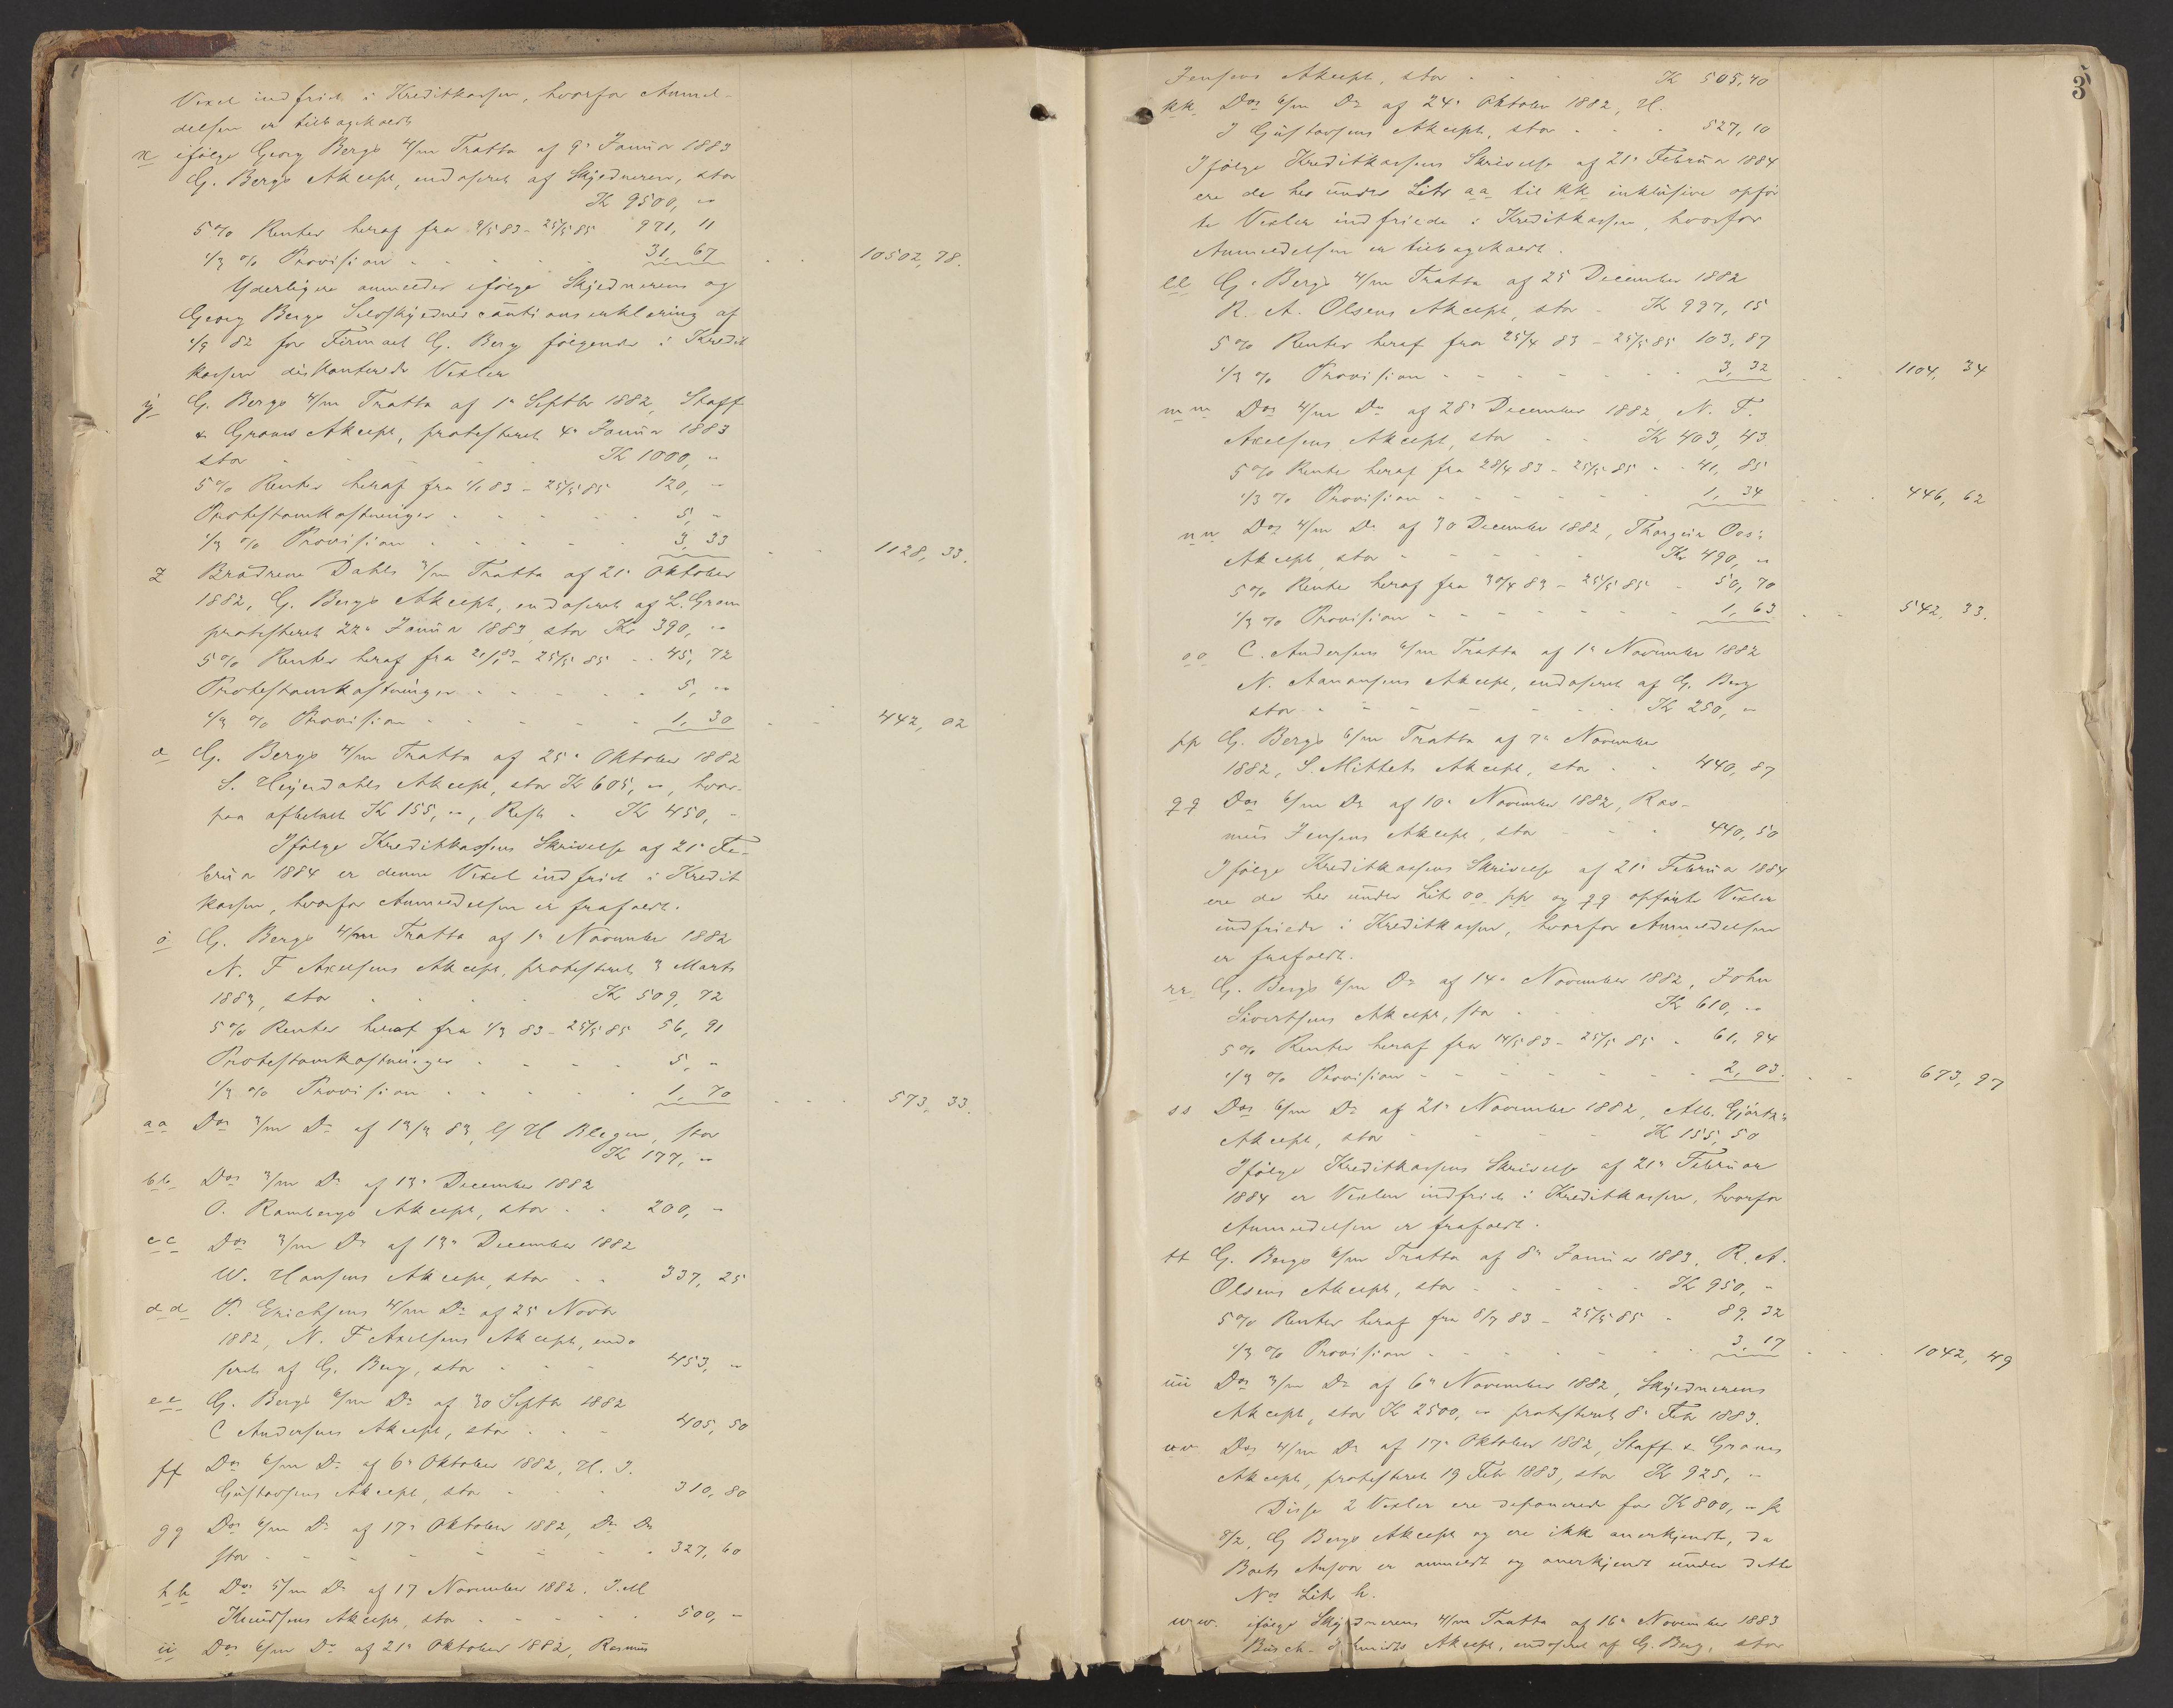 Vexel indfriet i Kreditkassen, hvorfor Anmel-
delsen er tilbagekaldt
x ifølge Georg Bergs 4/m Tratta af 9. Januar 1883
G. Bergs Akcept, endosseret af Skyldneren, stor
Kr 9500, "
5 % Renter heraf fra 9/5 83 - 25/5 85 971, 11
1/3 % Provision - - - - 31, 67 - - 10502, 78.
Yderligere anmeldes ifølge Skyldnerens og
Georg Bergs Selvskyldnercautionserklæring af
1/9 82 for Firmaet G. Berg følgende i Kredit
kassen diskonterede Vexler
y G. Bergs 4/m Tratta af 1. Septbr 1882, Staff
& Grams Akcept, protesteret 4. Januar 1883
stor - - - - Kr 1000, "
5 % Renter heraf fra 1/1 83 - 25/5 85 120, "
Protestomkostninger - - - - 5, "
1/3 % Provision - - - - 3, 33 - - 1128, 33.
z Brødrene Dahls 3/m Tratta af 21. Oktober
1882, G. Bergs Akcept, endosseret af L. Gram
protesteret 22. Januar 1883, stor Kr 390, "
5 % Renter heraf fra 21/1 83 - 25/5 85 - - 45, 72
Protestomkostninger - - - - 5, "
1/3 % Provision - - - - 1, 30 - - 442, 02
æ G. Bergs 4/m Tratta af 25. Oktober 1882
S. Heyerdahls Akcept, stor Kr 605, ", hvor-
paa afbetalt Kr 155, ", Rest - Kr 450, -
Ifølge Kreditkassens Skrivelse af 21. Fe-
bruar 1884 er denne Vexel indfriet i Kredit
kassen, hvorfor Anmeldelsen er frafaldt.
ø G. Bergs 4/m Tratta af 1. November 1882
N. F. Axelsens Akcept, protesteret 3 Marts
1883, stor - - - - Kr 509, 72
5 % Renter heraf fra 1/3 83 - 25/5 85 56, 91
Protestomkostninger - - - - 5, -
1/3 % Provision - - - - 1, 70 - - - 573, 33.
aa Dos 3/m Do af 13/3 83, H Blegen, stor
Kr 177, "
bb Dos 3/m Do af 13. December 1882
O. Rambergs Akcept, stor - - 200, -
cc Dos 3/m Do af 13. December 1882
W. Hansens Akcept, stor - - 337, 25
dd P. Erichsens 4/m Do af 25 Novbr
1882, N. F Axelsens Akcept, endo
seret af G. Berg, stor - - - 453, "
ee G. Bergs 6/m Do af 30 Septbr 1882
C Andersens Akcept, stor - - - 405, 50
ff Dos 6/m Do af 6. Oktober 1882, H. J.
Gustavsens Akcept, stor - - - 310, 80
gg Dos 6/m Do af 17. Oktober 1882, Do Do
stor - - - - - - 327, 60
hh Dos 5/m Do af 17 November 1882. J. M
Knudsens Akcept, stor - - - - 500, -
ii Dos 6/m Do af 21. Oktober 1882, Rasmus
3
Jensens Akcept, stor - - - Kr 505, 40
kk Dos 6/m Do af 24. Oktober 1882, H.
J Gustavsens Akcept, stor - - - 527, 10
Ifølge Kreditkassens Skrivelse af 21. Februar 1884
ere de her under Litr aa til kk inklusive opfør
te Vexler indfriede i Kreditkassen, hvorfor
Anmeldelsen er tilbagekaldt.
ll G. Bergs 4/m Tratta af 25 December 1882
R. A. Olsens Akcept, stor - Kr 997, 15
5 % Renter heraf fra 25/4 83 - 25/5 85 103, 87
1/3 % Provision - - - - - 3, 32 - - 1104, 34
mm Dos 4/m Do af 28. December 1882, N. F.
Axelsens Akcept, stor - - Kr 403, 43
5 % Renter heraf fra 28/4 83 - 25/5 85 - - 41, 85
1/3 % Provision - - - - - 1, 34 - - - 446, 62
nn Dos 4/m Do af 30 December 1882, Thorgeir Oos.
Akcept, stor - - - - Kr 490, "
5 % Renter heraf fra 30/4 83 - 25/5 85 - 50, 70
1/3 % Provision - - - - - 1, 63 - - 542, 33.
oo C. Andersens 6/m Tratta af 1. November 1882
N. Aanonsens Akcept, endosseret af G. Berg
stor - - - - - Kr 250, "
pp G. Bergs 6/m Tratta af 7. November
1882, S. Mittets Akcept, stor - - 440, 87
qq Dos 6/m Do af 10. November 1882, Ras-
mus Jensens Akcept, stor - - - 440, 50
Ifølge Kreditkassens Skrivelse af 21. Februar 1884
ere de her under Litr oo pp og qq opførte Vexler
indfriede i Kreditkassen, hvorfor Anmeldelsen
er frafaldt.
rr G. Bergs 6/m Do af 14. November 1882, John
Sivertsens Akcept, stor - - - Kr 610, "
5 % Renter heraf fra 14/5 83 - 25/5 85 - 61, 94
1/3 % Provision - - - - - 2, 03. - - 673, 97
ss Dos 6/m Do af 21. November 1882, Alb. Gjørtz.
Akcept, stor - - - - Kr 155, 50
Ifølge Kreditkassens Skrivelse af 21. Februar
1884 er Vexlen indfriet i Kreditkassen, hvorfor
Anmeldelsen er frafaldt.
tt G. Bergs 6/m Tratta af 8. Januar 1883, R. A.
Olsens Akcept, stor - - - - Kr 950, -
5 % Renter heraf fra 8/7 83 - 25/5 85 - 89, 32
1/3 % Provision - - - - - 3, 17 - - - 1042, 49
uu Dos 3/m Do af 6. November 1882, Skyldnerens
Akcept, stor Kr 2500, " protesteret 8. Febr 1883.
vv Dos 4/m Do af 17. Oktober 1882, Staff & Grams
Akcept, protesteret 19 Febr 1883, stor Kr 925, -
Disse 2 Vexler ere deponerede for Kr 800, -
8/2, G Bergs Akcept og ere ikke anerkjendt, da
Boets Ansvar er anmeldt og anerkjendt under dette
Nos Litr h.
ww. ifølge Skyldnerens 4/m Tratta af 16. November 1883
Busch-Schmidts Akcept, endosseret af G. Berg, stor